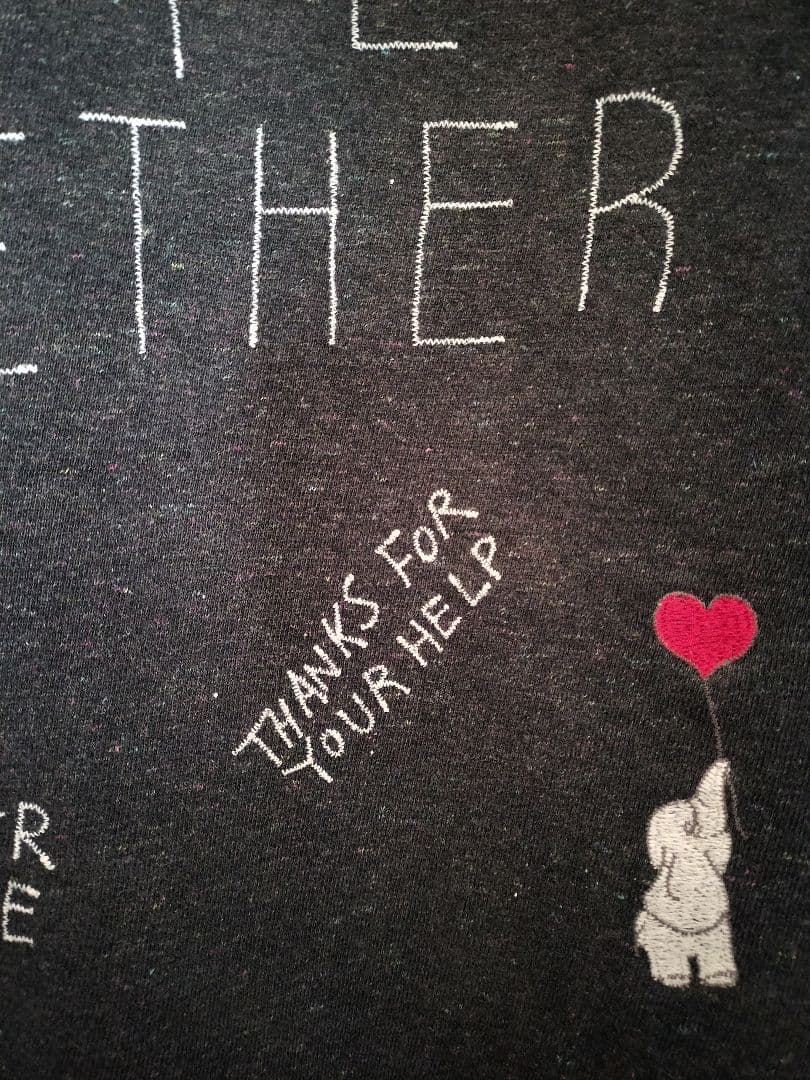 ETHER
THANKS FOR
YOUR HELP